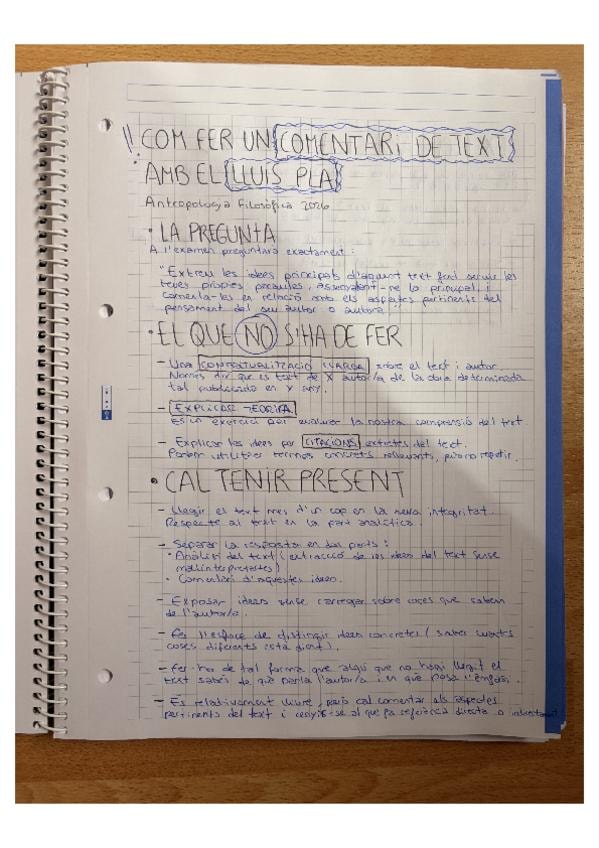 COM FER UN COMENTARI DE TEXT
AMB EL LLUIS PLA
Antropologia Filosòfica 2026
· LA PREGUNTA
A l'examen preguntarà exactament:
"Extreu les idees principals d'aquest text fent servir les
teves pròpies paraules, assenyalant-ne la principal, i
comenta-les en relació amb els aspectes pertinents del
pensament del seu autor o autora."
· EL QUE NO S'HA DE FER
- Una CONTEXTUALITZACIÓ LLARGA sobre el text i autor.
Només dir que es text de X autor/a de la obra determinada
tal publicada en Y any.
- EXPLICAR TEORIA.
És un exercici per avaluar la nostra comprensió del text.
- Explicar les idees per CITACIONS extretes del text.
Podem utilitzar termes concrets rellevants, però no repetir.
· CAL TENIR PRESENT
- Llegir el text més d'un cop en la seva integritat.
Respecte al text en la part analítica.
- Separar la resposta en dos parts:
· Anàlisi del text (extracció de les idees del text sense
malinterpretar-les)
· Comentari d'aquestes idees.
- Exposar idees sense carregar sobre coses que sabem
de l'autor/a.
- Fer l'esforç de distingir idees concretes (saber quantes
coses diferents està dient).
- Fer-ho de tal forma que algú que no hagi llegit el
text sabés de què parla l'autor/a i en què posa l'èmfasi.
- És relativament lliure, però cal comentar els aspectes
pertinents del text i cenyir-se al que fa referència directa o indirectament.